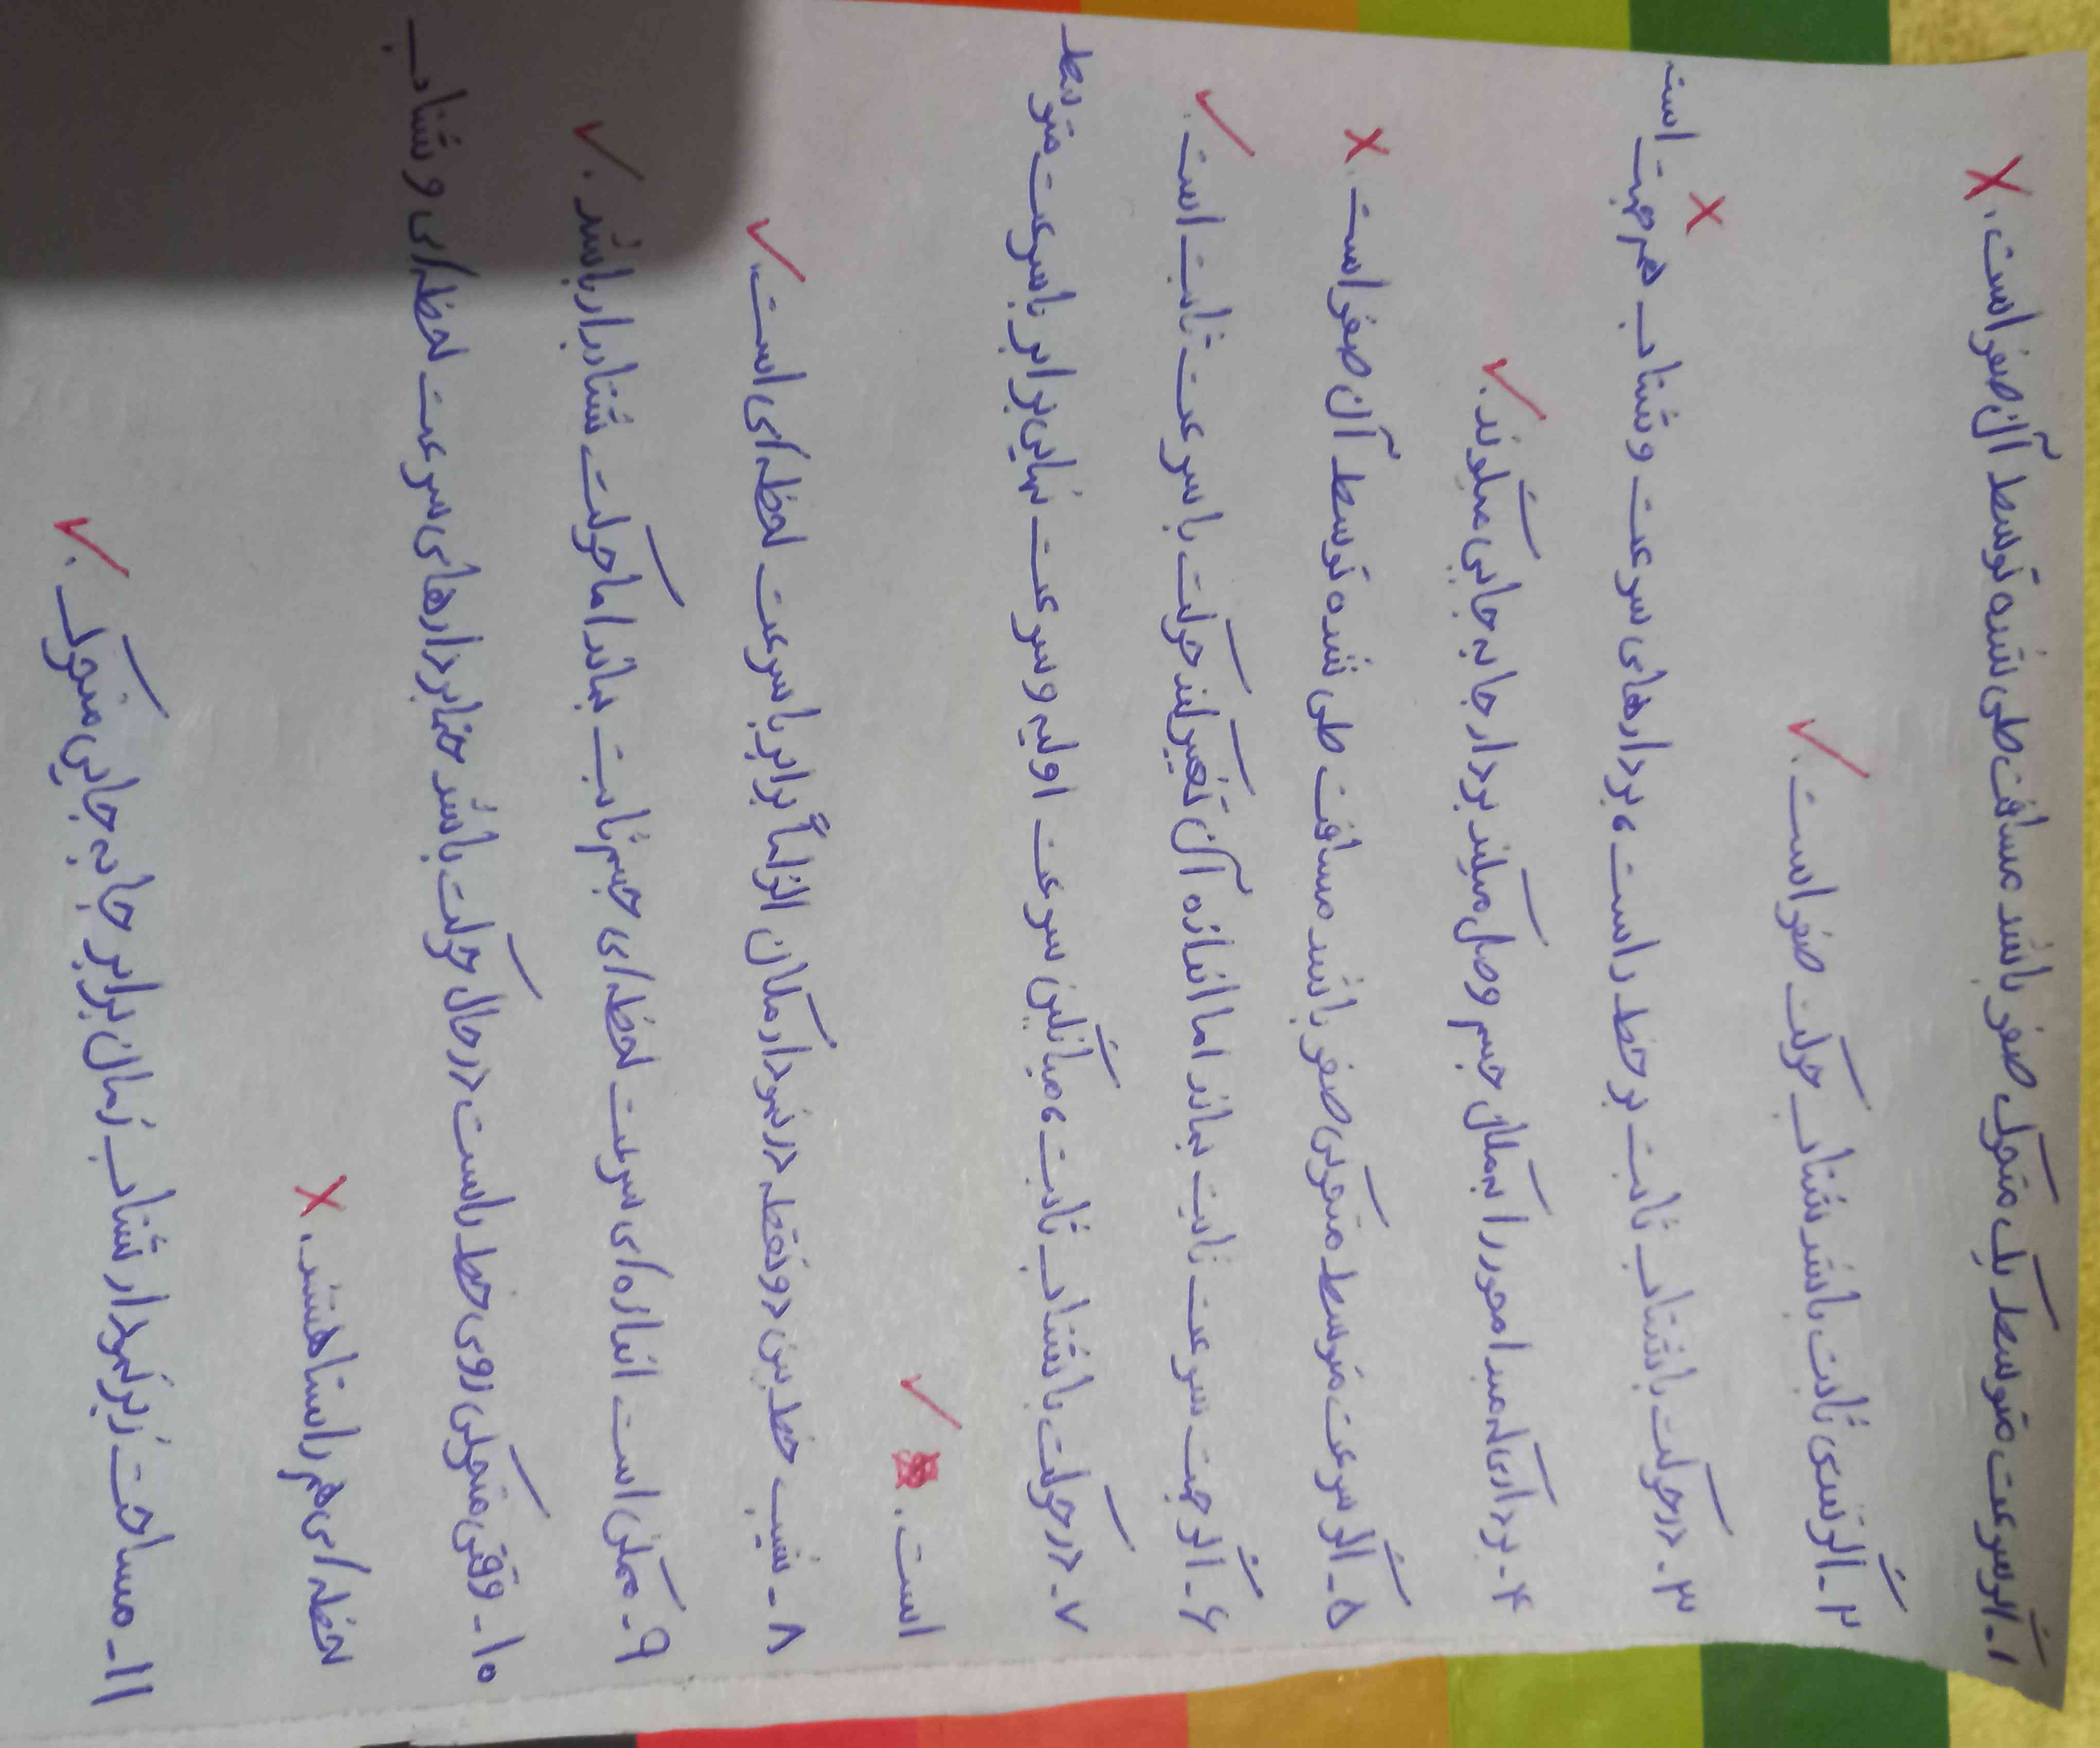 ۱- اگر سرعت متوسط یک متحرک صفر باشد مسافت طی شده توسط آن صفر است. ✗
۲- اگر تندی ثابت باشد شتاب حرکت صفر است. ✓
۳- در حرکت باشتاب ثابت بر خط راست، بردارهای سرعت و شتاب هم جهت است ✗
۴- برداری که مبدا محور را به مکان جسم وصل میکند بردار جا به جایی میگوند. ✓
۵- اگر سرعت متوسط متحرکی صفر باشد مسافت طی شده توسط آن صفر است. ✗
۶- اگر جهت سرعت ثابت بماند اما اندازه آن تغییر کند حرکت با سرعت ثابت است. ✓
۷- در حرکت باشتاب ثابت، میانگین سرعت اولیه و سرعت نهایی برابر با سرعت متوسط
است. ✓
۸- شیب خط بین دو نقطه در نمودار مکان الزاماً برابر با سرعت لحظه ای است. ✓
۹- ممکن است اندازه ای سرعت لحظه ای جسم ثابت بماند اما حرکت شتابدار باشد. ✓
۱۰- وقتی متحرکی روی خط راست در حال حرکت باشد حتما بردارهای سرعت لحظه ای و شتاب
لحظه ای هم راستا هستند. ✗
۱۱- مساحت زیر نمودار شتاب زمان برابر جا به جایی متحرک. ✓